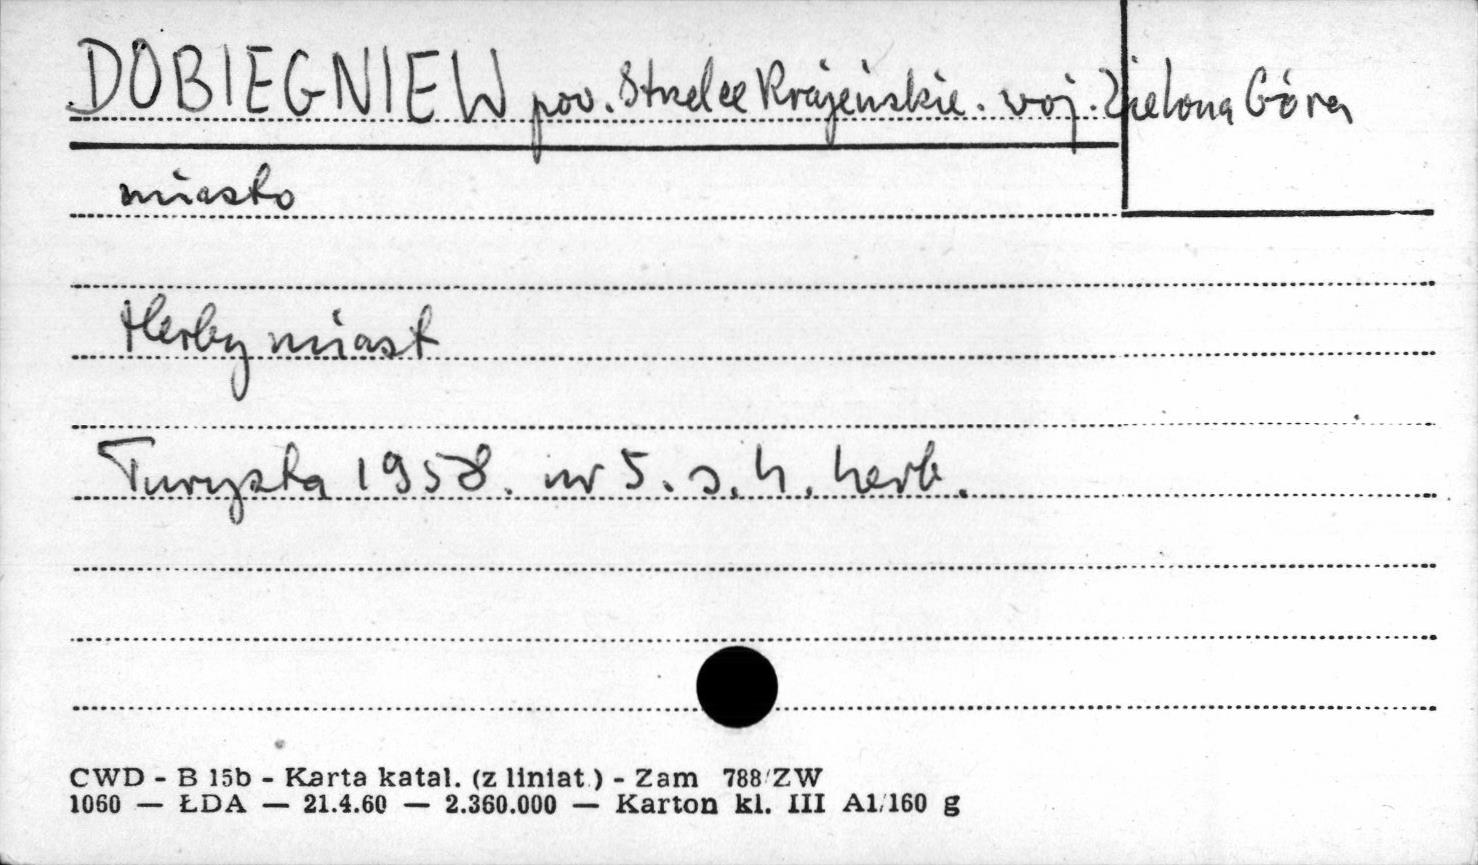 DOBIEGNIEW pow. Strzelce Krajeńskie. woj. Zielona Góra
miasto
Herby miast
Turysta 1958. nr 5. s. 4. herb.
CWD - B 15b - Karta katal. (z liniat.) - Zam 788/ZW
1060 — ŁDA — 21.4.60 — 2.360.000 — Karton kl. III A1/160 g